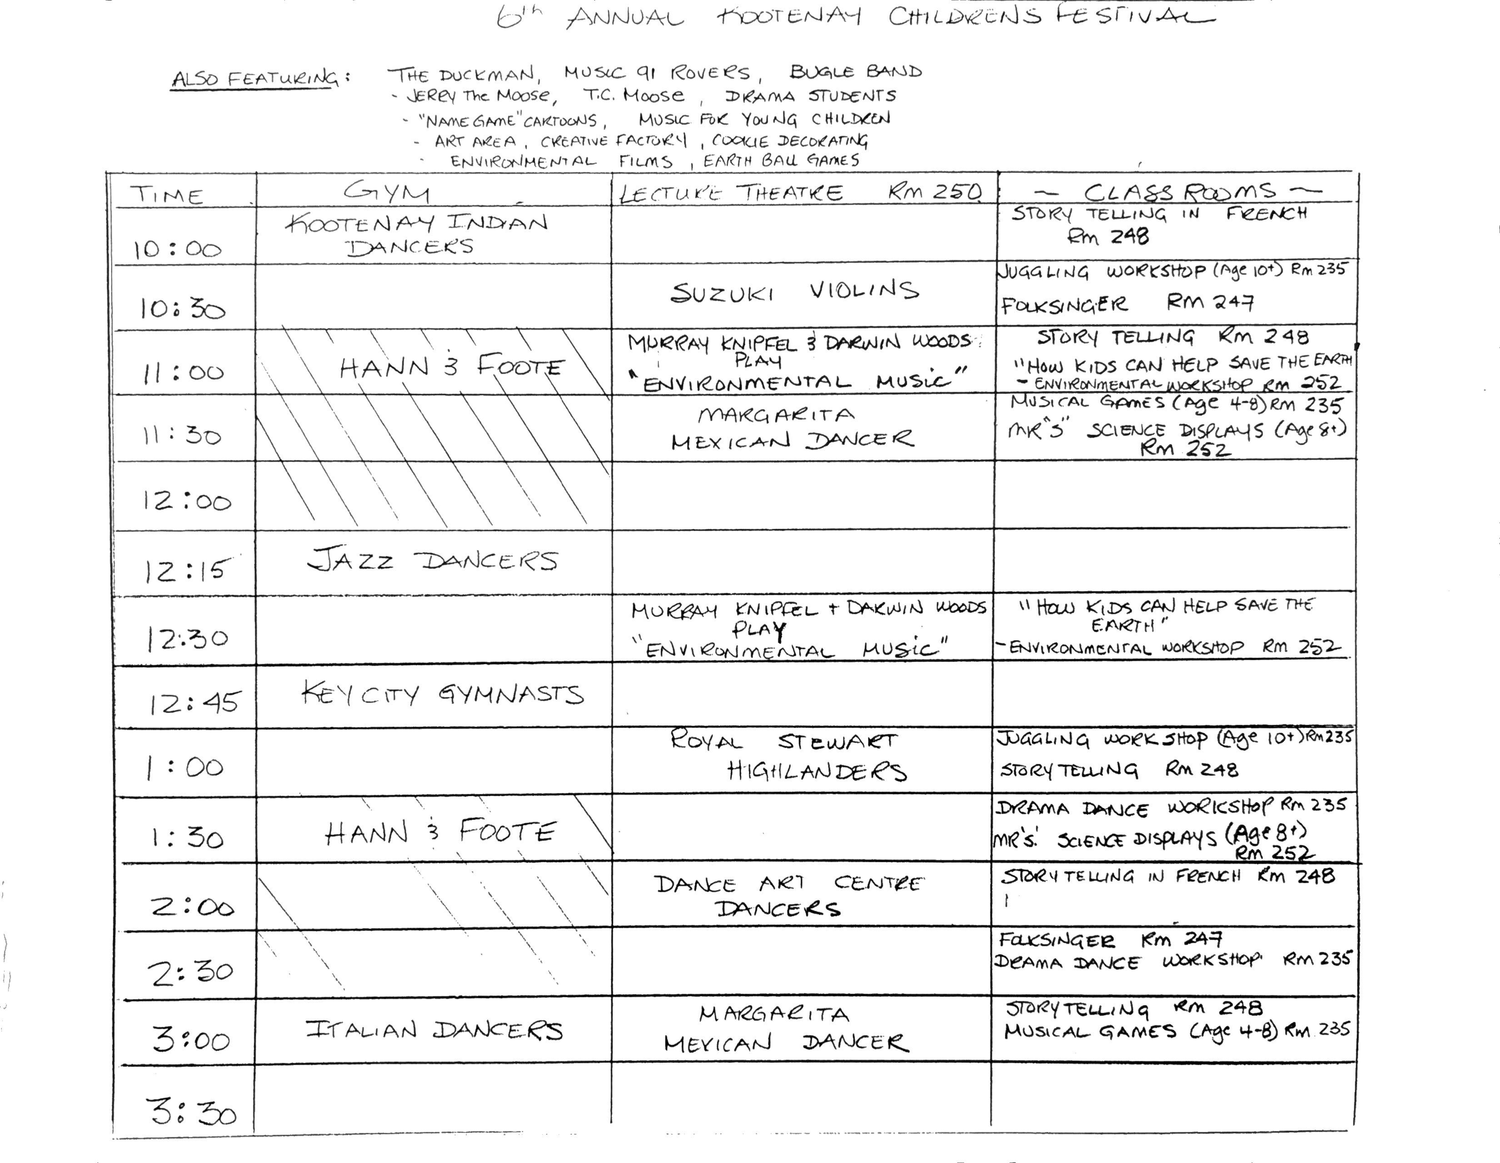 6th ANNUAL KOOTENAY CHILDRENS FESTIVAL
ALSO FEATURING: THE DUCKMAN, MUSIC 91 ROVERS, BUGLE BAND
- JERRY The MOOSE, T.C. MOOSE, DRAMA STUDENTS
- "NAME GAME" CARTOONS, MUSIC FOR YOUNG CHILDREN
- ART AREA, CREATIVE FACTORY, COOKIE DECORATING
- ENVIRONMENTAL FILMS, EARTH BALL GAMES
TIME GYM LECTURE THEATRE RM 250 ~ CLASSROOMS ~
10:00
KOOTENAY INDIAN
DANCERS
STORY TELLING IN FRENCH
Rm 248
10:30
SUZUKI VIOLINS
JUGGLING WORKSHOP (Age 10+) Rm 235
FOLKSINGER RM 247
11:00
HANN & FOOTE
MURRAY KNIPFEL & DARWIN WOODS
PLAY
"ENVIRONMENTAL MUSIC"
STORY TELLING Rm 248
"HOW KIDS CAN HELP SAVE THE EARTH
- ENVIRONMENTAL WORKSHOP RM 252
11:30
MARGARITA
MEXICAN DANCER
MUSICAL GAMES (Age 4-8) RM 235
MR "S" SCIENCE DISPLAYS (Age 8+)
Rm 252
12:00
12:15
JAZZ DANCERS
12:30
MURRAY KNIPFEL + DARWIN WOODS
PLAY
"ENVIRONMENTAL MUSIC"
"HOW KIDS CAN HELP SAVE THE
EARTH"
- ENVIRONMENTAL WORKSHOP RM 252
12:45
KEY CITY GYMNASTS
1:00
ROYAL STEWART
HIGHLANDERS
JUGGLING WORKSHOP (Age 10+) Rm 235
STORY TELLING RM 248
1:30
HANN & FOOTE
DRAMA DANCE WORKSHOP Rm 235
MR 'S' SCIENCE DISPLAYS (Age 8+)
RM 252
2:00
DANCE ART CENTRE
DANCERS
STORY TELLING IN FRENCH Rm 248
2:30
FOLKSINGER Rm 247
DRAMA DANCE WORKSHOP RM 235
3:00
ITALIAN DANCERS
MARGARITA
MEXICAN DANCER
STORYTELLING RM 248
MUSICAL GAMES (Age 4-8) RM 235
3:30